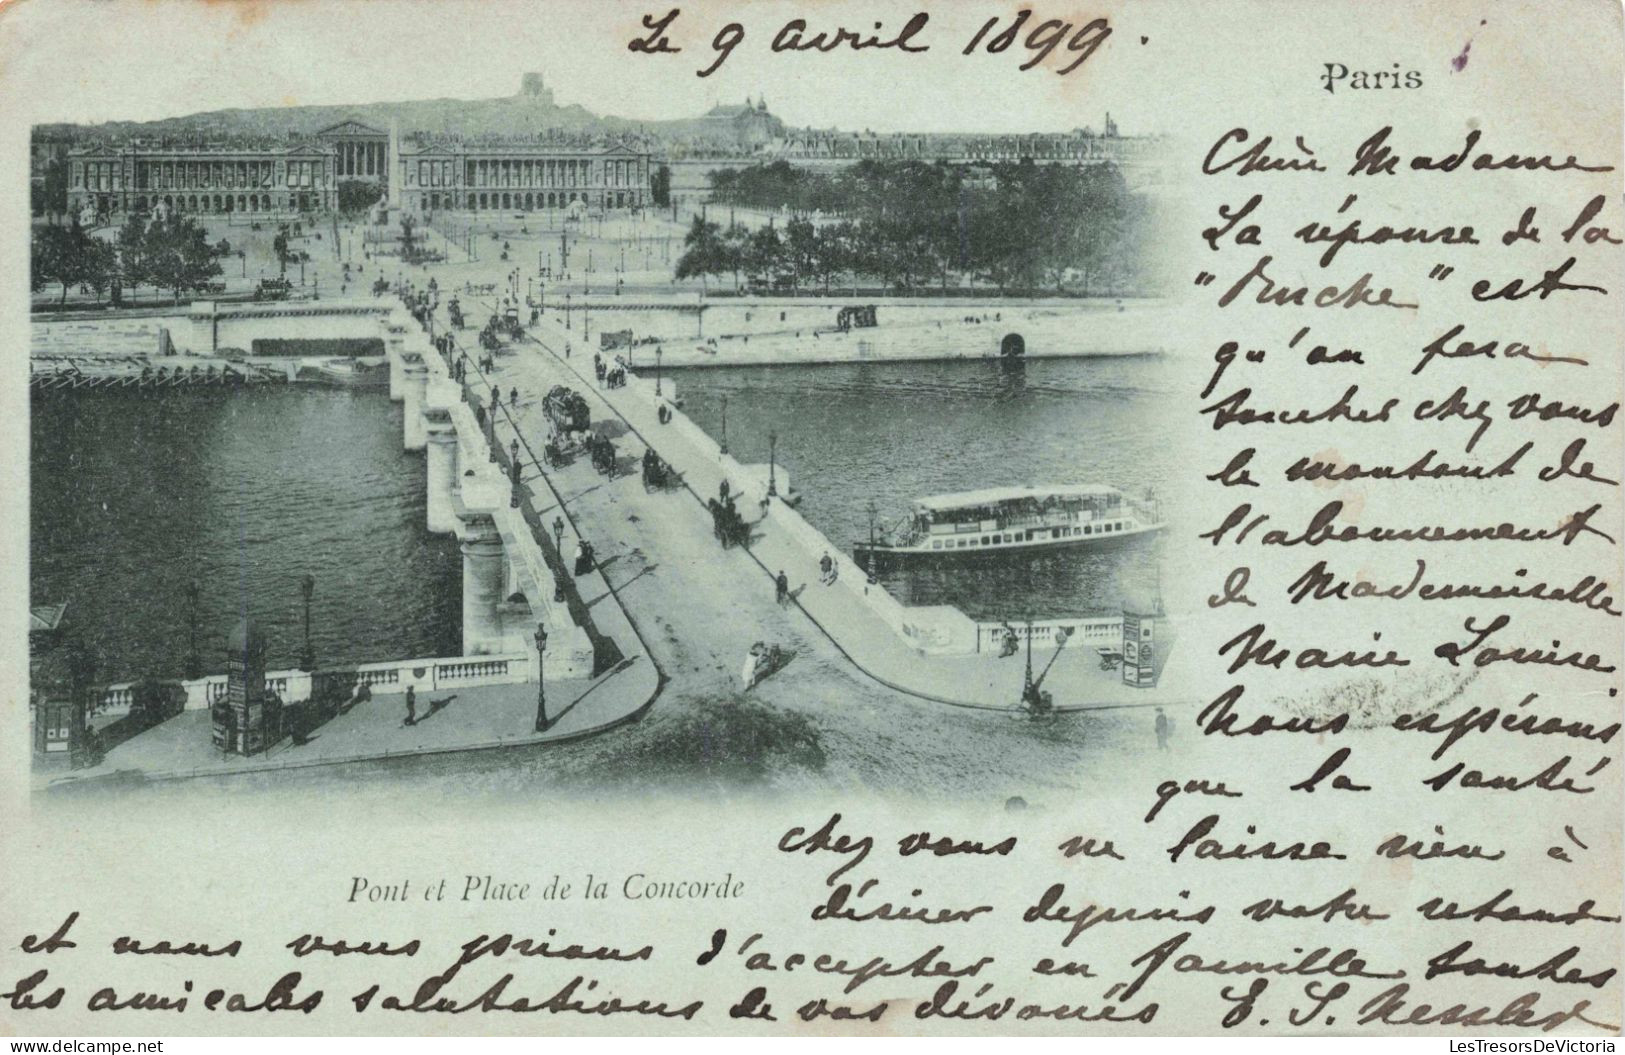 Le 9 avril 1899.
Paris
Chère Madame
La réponse de la
"Ruche" est
qu'on fera
toucher chez vous
le montant de
l'abonnement
de Mademoiselle
Marie Louise
Nous espérons
que la santé
chez vous ne laisse rien à
désirer depuis votre
Pont et Place de la Concorde
et nous vous prions d'accepter en famille toutes
les amicales salutations de vos dévoués E. S. Kessler
LesTresorsDeVictoria